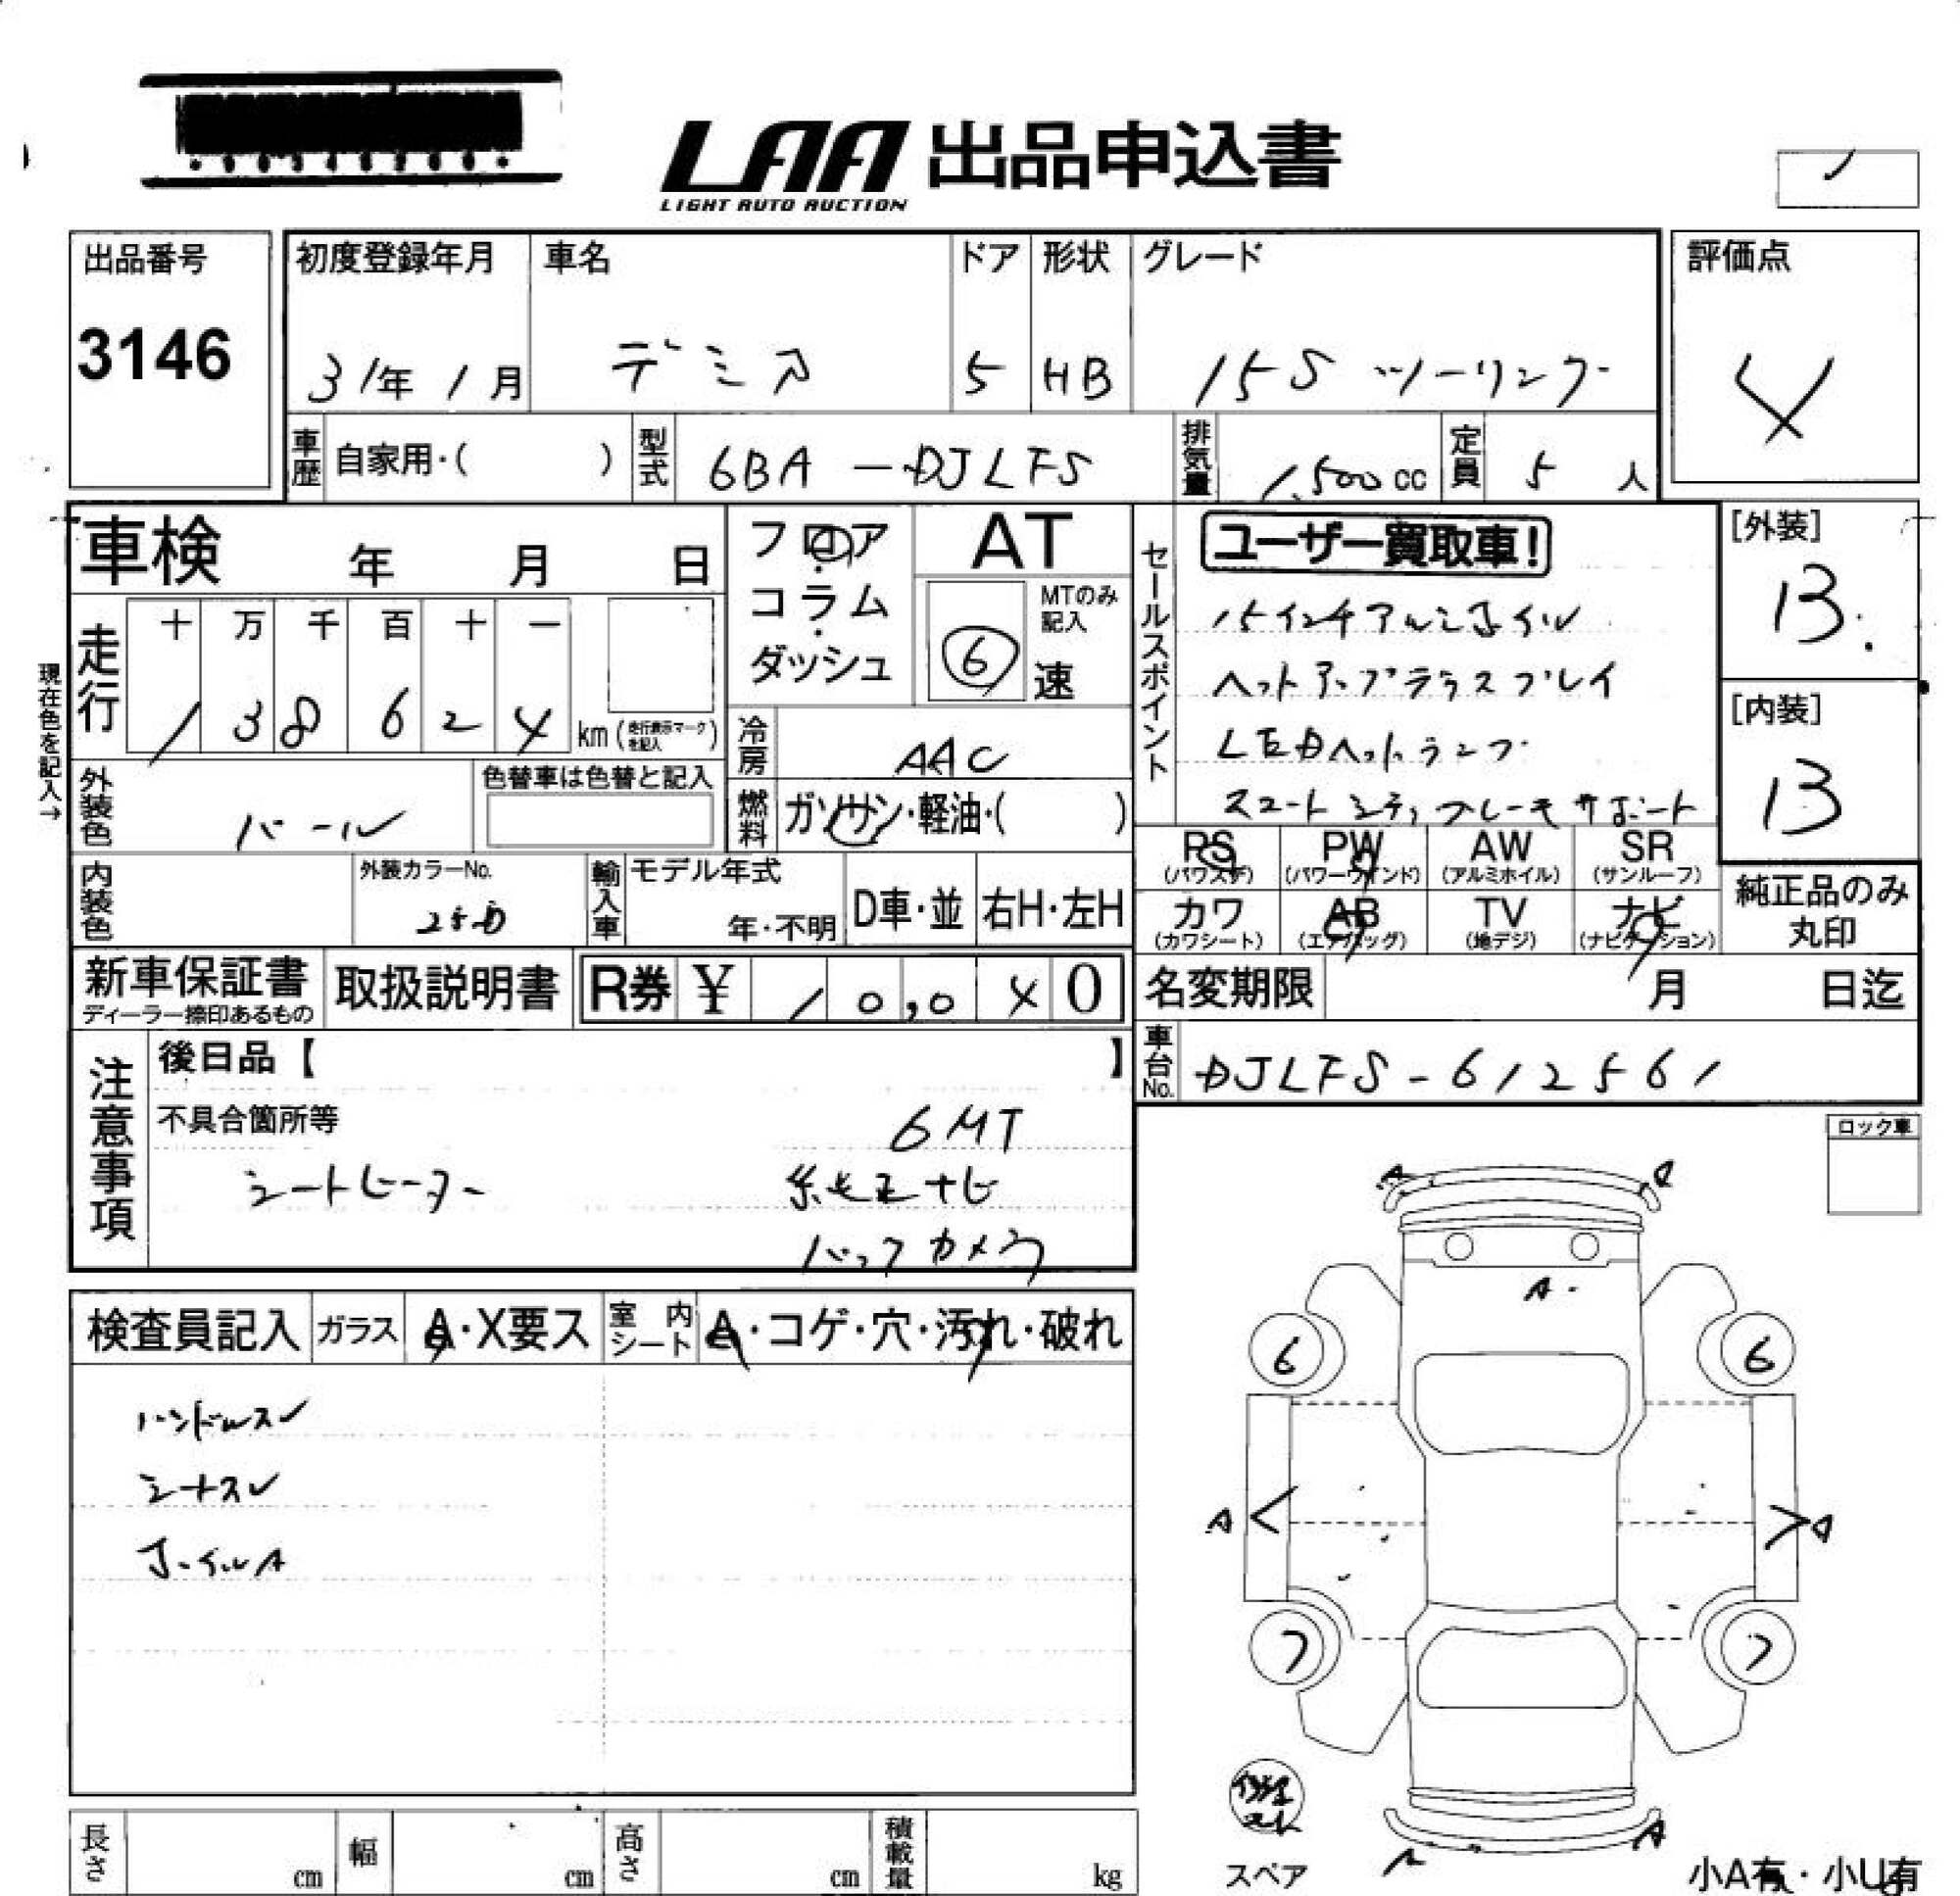 LAA 出品申込書
LIGHT AUTO AUCTION
出品番号
3146
初度登録年月
31年 1月
車名
デミオ
ドア
5
形状
HB
グレード
15S ツーリング
評価点
4
車歴
自家用・( )
型式
6BA-DJLFS
排気量
1,500cc
定員
5人
車検 年 月 日
フロア
コラム
ダッシュ
AT
MTのみ記入
6速
走行
十 万 千 百 十 一
1 3 8 6 2 4 km (走行表示マークを記入)
現在色を記入→
冷房
AAC
燃料
ガソリン・軽油・( )
外装色
パール
色替車は色替と記入
内装色
外装カラーNo.
25D
輸入車
モデル年式
年・不明
D車・並
右H・左H
セールスポイント
ユーザー買取車!
15インチアルミホイル
ヘッドアップディスプレイ
LEDヘッドランプ
スマートシティブレーキサポート
[外装]
B
[内装]
B
PS
(パワステ)
PW
(パワーウインド)
AW
(アルミホイル)
SR
(サンルーフ)
カワ
(カワシート)
AB
(エアバッグ)
TV
(地デジ)
ナビ
(ナビゲーション)
純正品のみ
丸印
新車保証書
ディーラー捺印あるもの
取扱説明書
R券 ¥ 10,0 0
名変期限 月 日迄
車台No.
DJLFS-612561
注意事項
後日品【 】
不具合箇所等
6MT
シートヒーター
純正ナビ
バックカメラ
ロック車
検査員記入
ガラス
A・X要ス
室内シート
A・コゲ・穴・汚れ・破れ
ハンドルスレ
シートスレ
ホイルA
A
A
A
6
6
A
A
7
7
A
A
スペア
小A有・小U有
長さ cm
幅 cm
高さ cm
積載量 kg